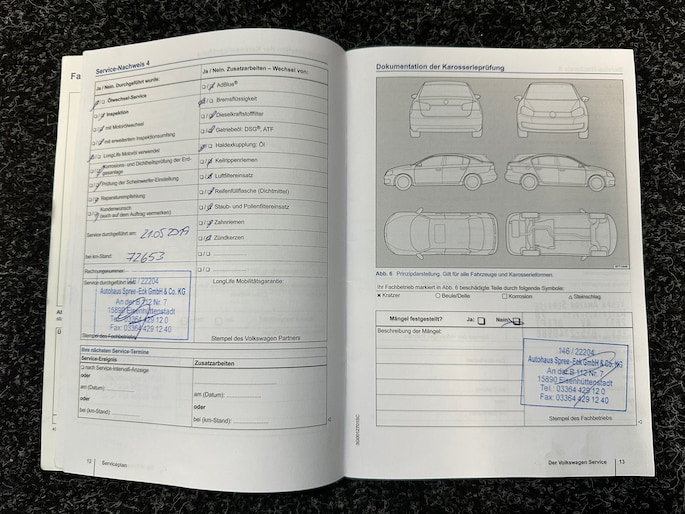 Fa
Service-Nachweis 4
Ja / Nein. Durchgeführt wurde:
Ölwechsel-Service
Inspektion
mit Motorölwechsel
mit erweitertem Inspektionsumfang
LongLife Motoröl verwendet
Korrosions- und Dichtheitsprüfung der Erdgasanlage
Prüfung der Scheinwerfer-Einstellung
Reparaturempfehlung
Kundenwunsch
(auch auf dem Auftrag vermerken)
Service durchgeführt am: 21.05.2019
bei km-Stand: 72653
Rechnungsnummer:
Service durchgeführt von:
146 / 22204
Autohaus Spree-Eck GmbH & Co. KG
An der B 112 Nr. 7
15890 Eisenhüttenstadt
Tel.: 03364 429 12 0
Fax: 03364 429 12 40
Stempel des Fachbetriebs
Ja / Nein. Zusatzarbeiten – Wechsel von:
AdBlue®
Bremsflüssigkeit
Dieselkraftstofffilter
Getriebeöl: DSG®, ATF
Haldexkupplung: Öl
Keilrippenriemen
Luftfiltereinsatz
Reifenfüllflasche (Dichtmittel)
Staub- und Pollenfiltereinsatz
Zahnriemen
Zündkerzen
LongLife Mobilitätsgarantie:
Stempel des Volkswagen Partners
Ihre nächsten Service-Termine
Service-Ereignis
nach Service-Intervall-Anzeige
oder
am (Datum):
oder
bei (km-Stand):
Zusatzarbeiten
am (Datum):
oder
bei (km-Stand):
12 | Serviceplan
Dokumentation der Karosserieprüfung
Abb. 6 Prinzipdarstellung. Gilt für alle Fahrzeuge und Karosserieformen.
Ihr Fachbetrieb markiert in Abb. 6 beschädigte Teile durch folgende Symbole:
× Kratzer ○ Beule/Delle □ Korrosion △ Steinschlag
Mängel festgestellt? Ja: Nein:
Beschreibung der Mängel:
146 / 22204
Autohaus Spree-Eck GmbH & Co. KG
An der B 112 Nr. 7
15890 Eisenhüttenstadt
Tel.: 03364 429 12 0
Fax: 03364 429 12 40
Stempel des Fachbetriebs
Der Volkswagen Service | 13